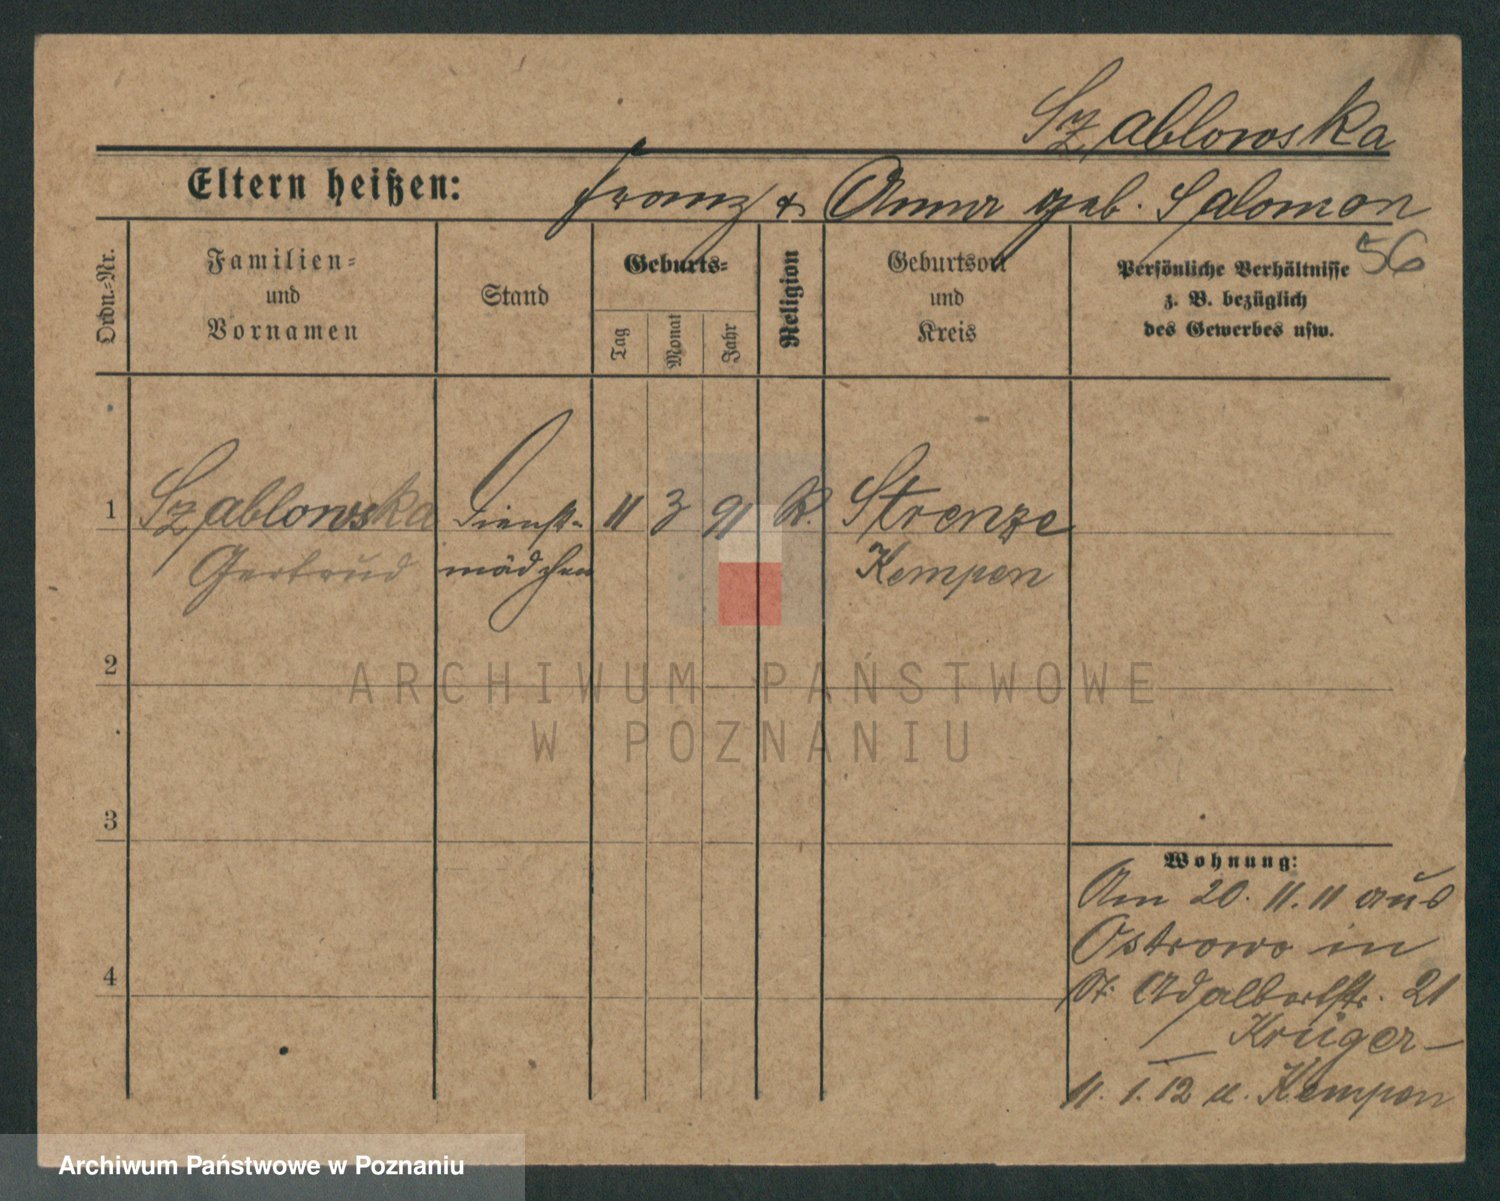 Szablowska
Eltern heißen: Franz & Anna geb. Salomon
56
Ordn.-Nr.
Familien=
und
Vornamen
Stand
Geburts=
Tag
Monat
Jahr
Religion
Geburtsort
und
Kreis
Persönliche Verhältnisse
z. B. bezüglich
des Gewerbes usw.
1 Szablowska Dienst- 11 3 91 K. Strenze
Gertrud mädchen Kempen
ARCHIWUM PAŃSTWOWE
W POZNANIU
2
3
4
Wohnung:
Am 20. 11. 11 aus
Ostrowo in
St. Adalbertstr. 21
Krüger –
11. 1. 12 n. Kempen
Archiwum Państwowe w Poznaniu